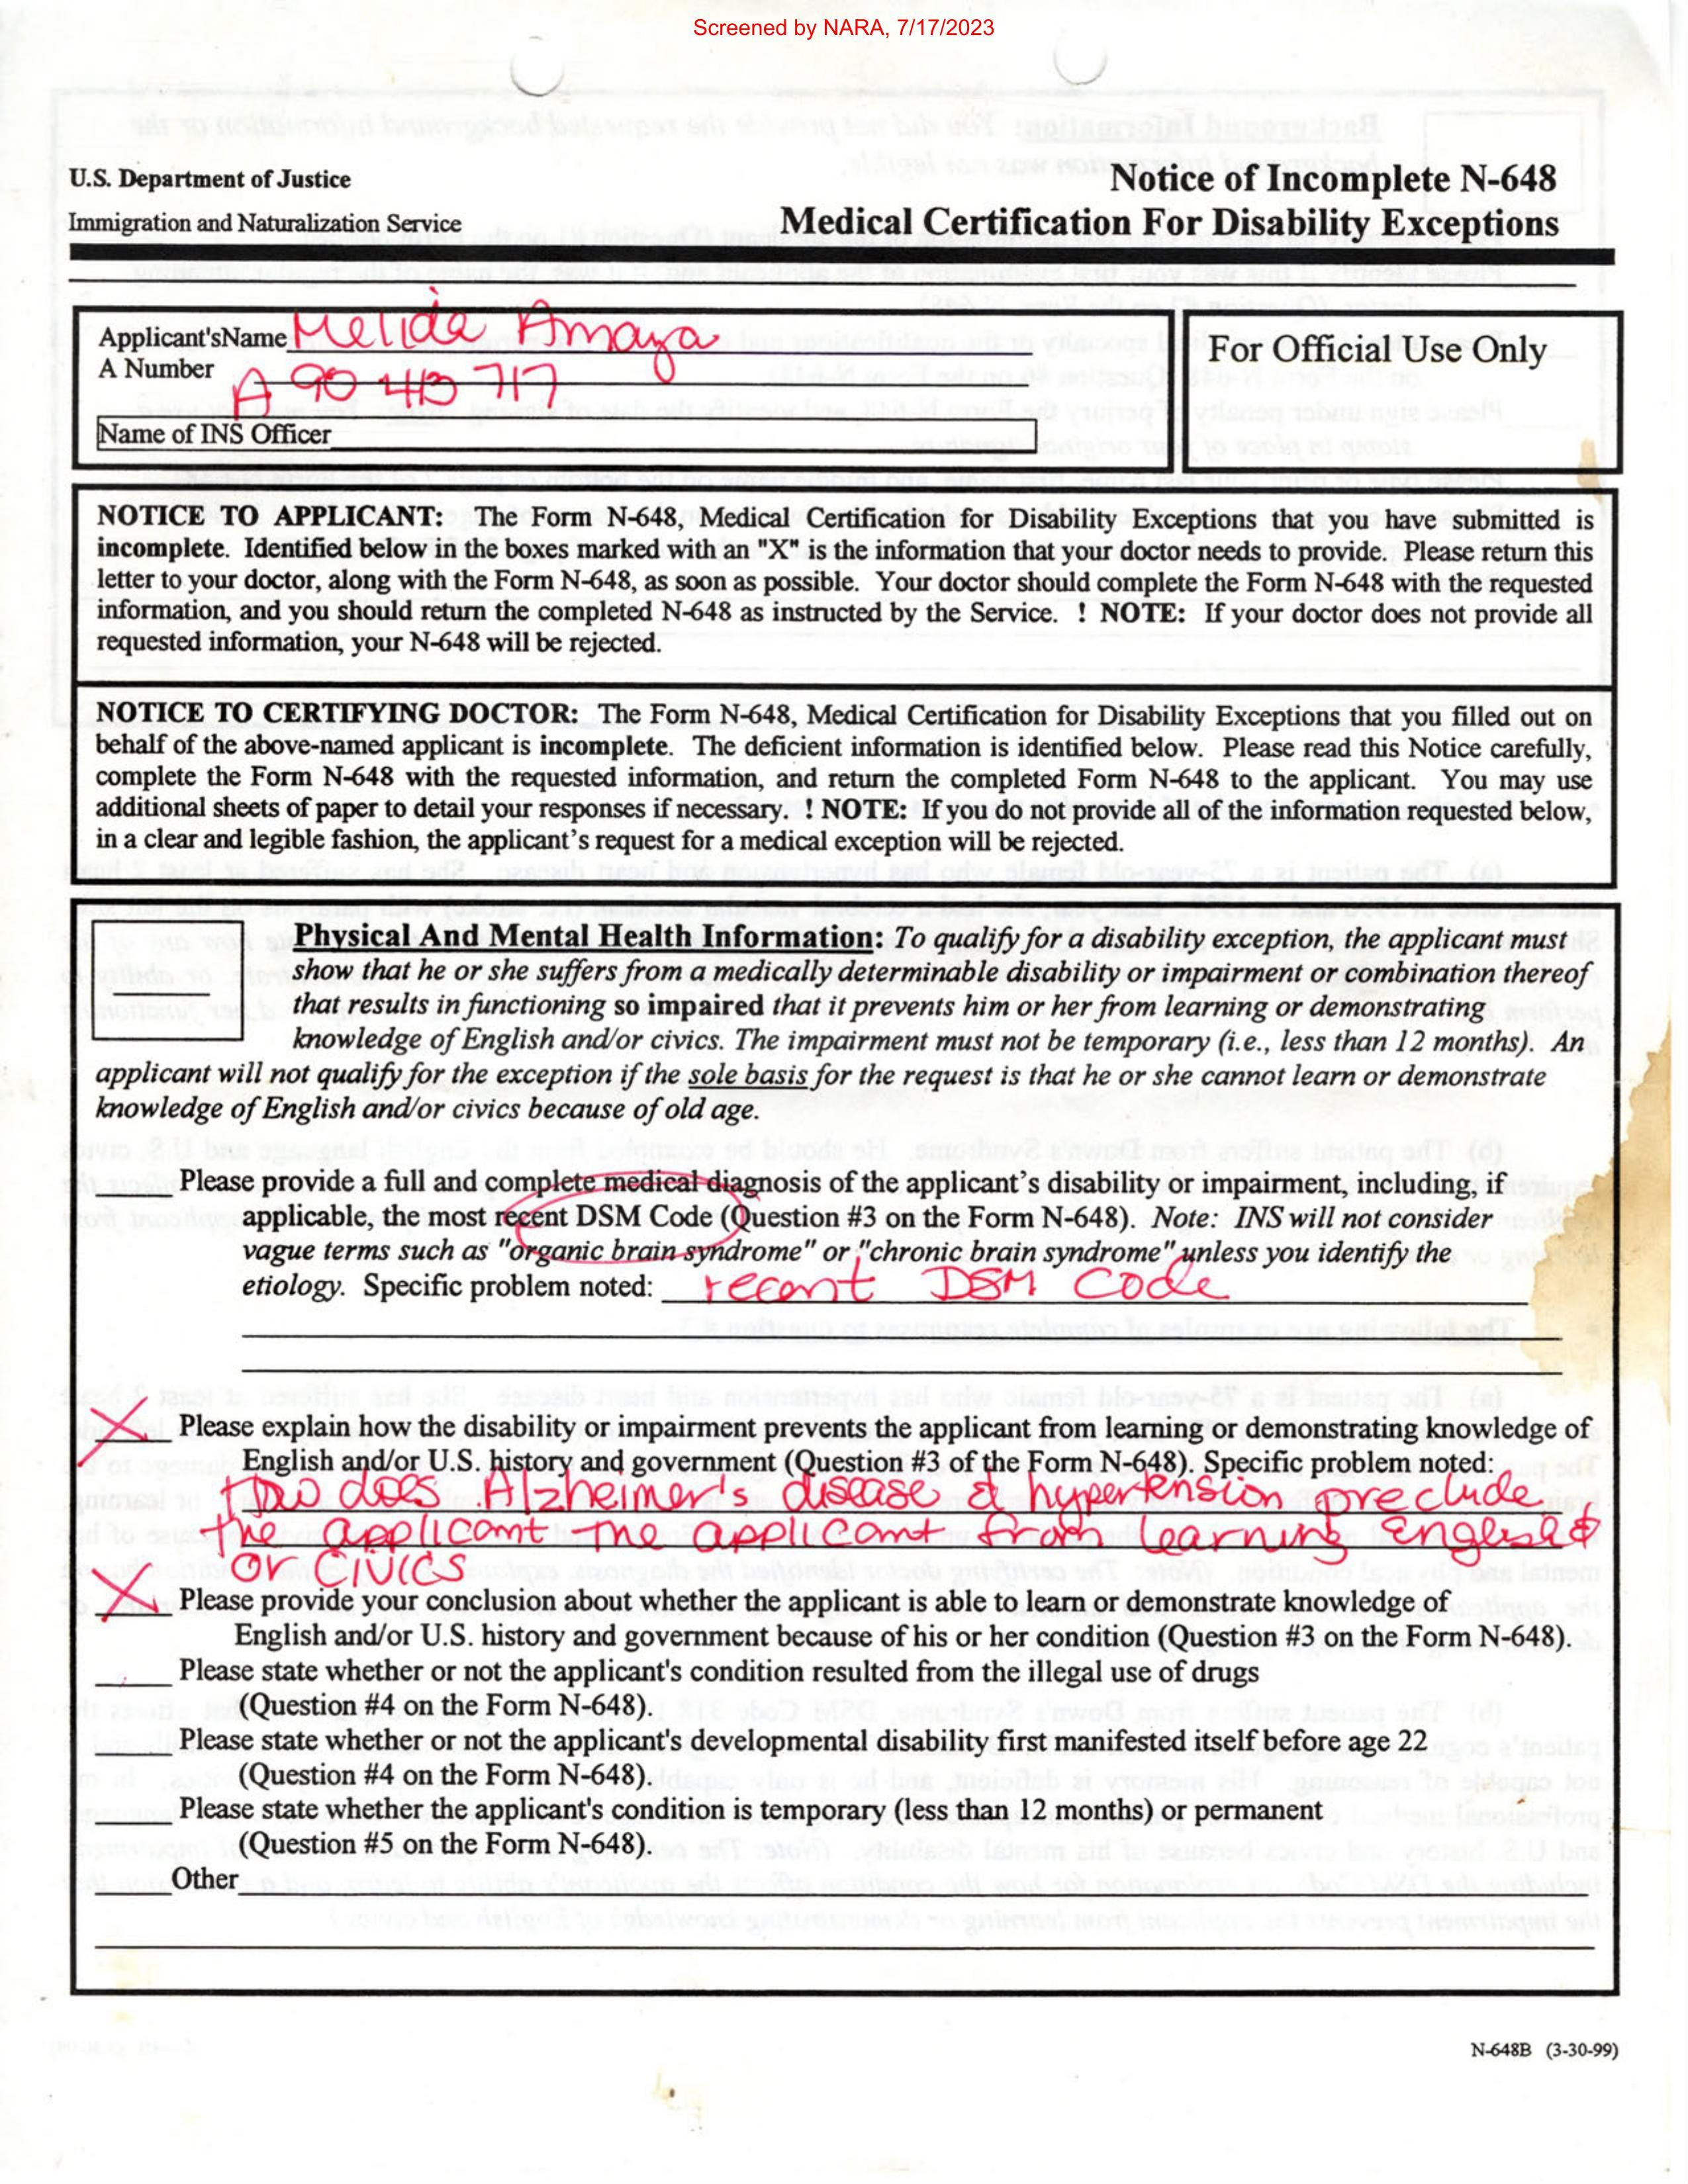 Screened by NARA, 7/17/2023
U.S. Department of Justice
Immigration and Naturalization Service
Notice of Incomplete N-648
Medical Certification For Disability Exceptions
Applicant'sName Melida Amaya
A Number A 90 413 717
Name of INS Officer
For Official Use Only
NOTICE TO APPLICANT: The Form N-648, Medical Certification for Disability Exceptions that you have submitted is
incomplete. Identified below in the boxes marked with an "X" is the information that your doctor needs to provide. Please return this
letter to your doctor, along with the Form N-648, as soon as possible. Your doctor should complete the Form N-648 with the requested
information, and you should return the completed N-648 as instructed by the Service. ! NOTE: If your doctor does not provide all
requested information, your N-648 will be rejected.
NOTICE TO CERTIFYING DOCTOR: The Form N-648, Medical Certification for Disability Exceptions that you filled out on
behalf of the above-named applicant is incomplete. The deficient information is identified below. Please read this Notice carefully,
complete the Form N-648 with the requested information, and return the completed Form N-648 to the applicant. You may use
additional sheets of paper to detail your responses if necessary. ! NOTE: If you do not provide all of the information requested below,
in a clear and legible fashion, the applicant's request for a medical exception will be rejected.
Physical And Mental Health Information: To qualify for a disability exception, the applicant must
show that he or she suffers from a medically determinable disability or impairment or combination thereof
that results in functioning so impaired that it prevents him or her from learning or demonstrating
knowledge of English and/or civics. The impairment must not be temporary (i.e., less than 12 months). An
applicant will not qualify for the exception if the sole basis for the request is that he or she cannot learn or demonstrate
knowledge of English and/or civics because of old age.
Please provide a full and complete medical diagnosis of the applicant's disability or impairment, including, if
applicable, the most recent DSM Code (Question #3 on the Form N-648). Note: INS will not consider
vague terms such as "organic brain syndrome" or "chronic brain syndrome" unless you identify the
etiology. Specific problem noted: recent DSM Code
X Please explain how the disability or impairment prevents the applicant from learning or demonstrating knowledge of
English and/or U.S. history and government (Question #3 of the Form N-648). Specific problem noted:
does Alzheimer's disease & hypertension preclude
the applicant the applicant from learning
or Civics
X Please provide your conclusion about whether the applicant is able to learn or demonstrate knowledge of
English and/or U.S. history and government because of his or her condition (Question #3 on the Form N-648).
Please state whether or not the applicant's condition resulted from the illegal use of drugs
(Question #4 on the Form N-648).
Please state whether or not the applicant's developmental disability first manifested itself before age 22
(Question #4 on the Form N-648).
Please state whether the applicant's condition is temporary (less than 12 months) or permanent
(Question #5 on the Form N-648).
Other
N-648B (3-30-99)